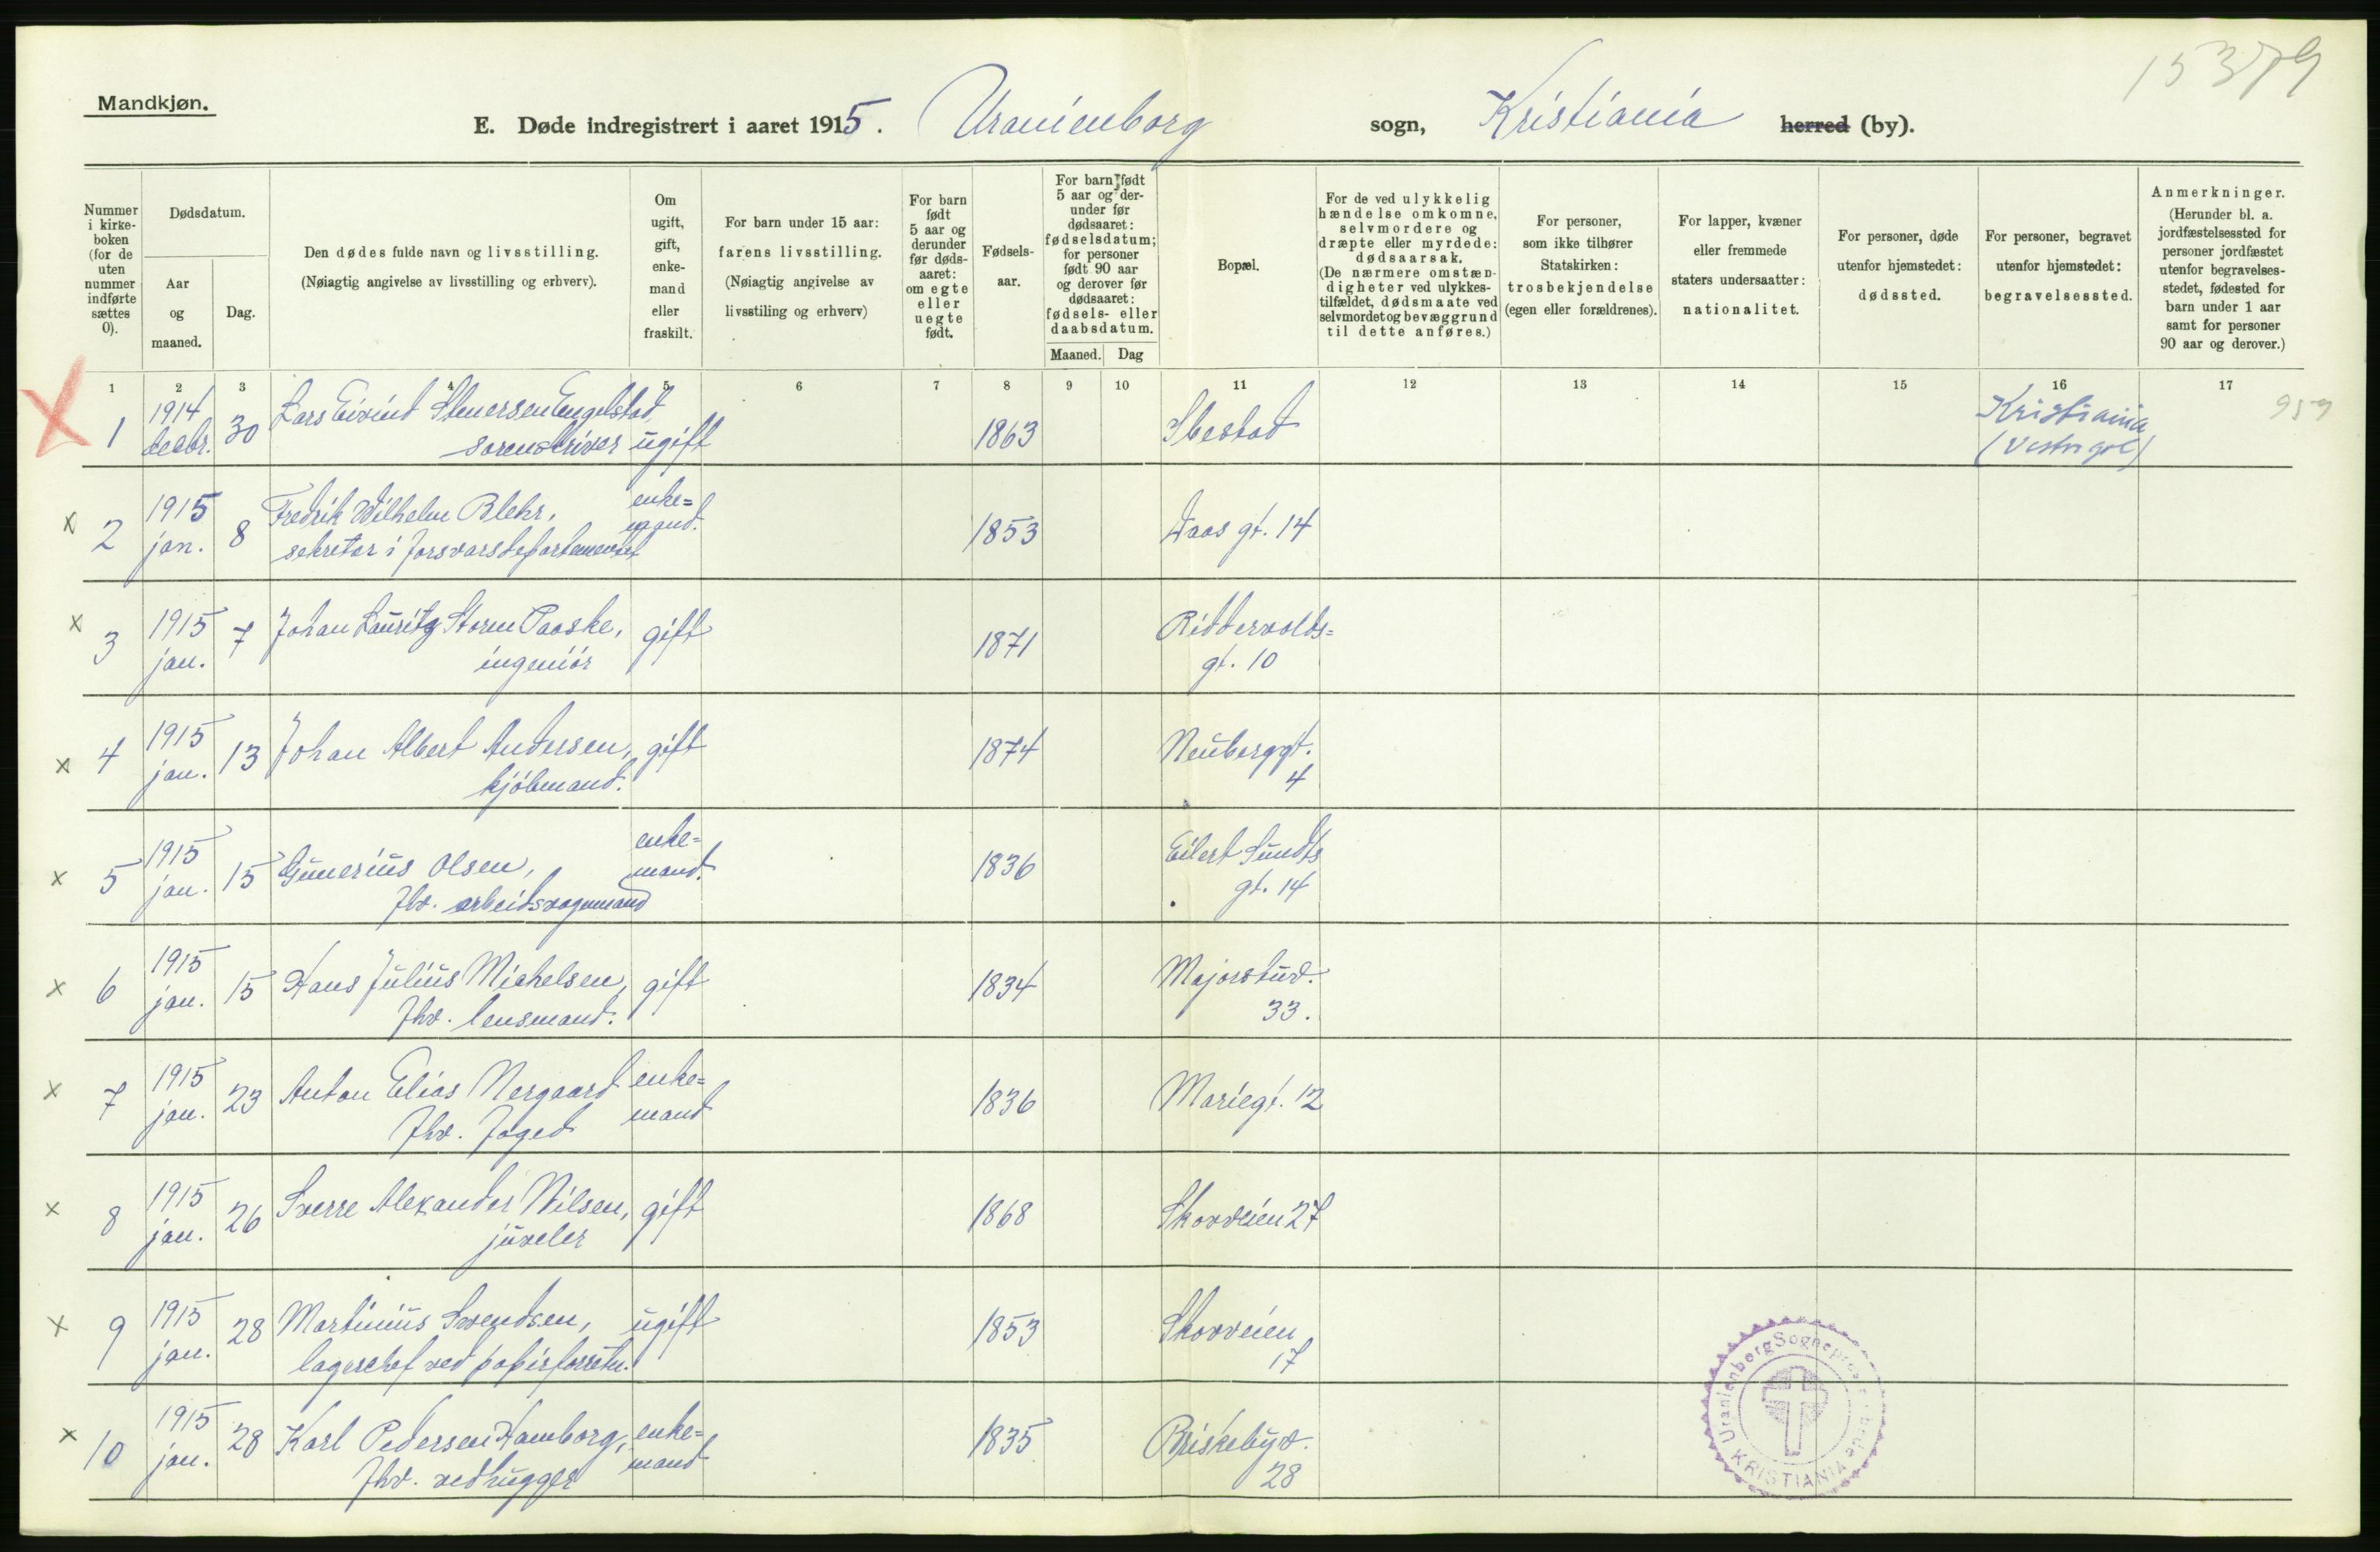 15379
Mandkjøn.
E. Døde indregistrert i aaret 1915. Uranienborg sogn, Kristiania herred (by).
Nummer i kirkeboken (for de uten nummer indførte sættes 0).
Dødsdatum.
Aar og maaned.
Dag.
Den dødes fulde navn og livsstilling.
(Nøiagtig angivelse av livsstilling og erhverv).
Om ugift, gift, enkemand eller fraskilt.
For barn under 15 aar:
farens livsstilling.
(Nøiagtig angivelse av livsstiling og erhverv)
For barn født 5 aar og derunder før dødsaaret: om egte eller uegte født.
Fødselsaar.
For barn født 5 aar og derunder før dødsaaret: fødselsdatum; for personer født 90 aar og derover før dødsaaret: fødsels- eller daabsdatum.
Maaned. Dag
Bopæl.
For de ved ulykkelig hændelse omkomne, selvmordere og dræpte eller myrdede: dødsaarsak.
(De nærmere omstændigheter ved ulykkestilfældet, dødsmaate ved selvmordet og bevæggrund til dette anføres.)
For personer, som ikke tilhører Statskirken: trosbekjendelse (egen eller forældrenes).
For lapper, kvæner eller fremmede staters undersaatter: nationalitet.
For personer, døde utenfor hjemstedet: dødssted.
For personer, begravet utenfor hjemstedet: begravelsessted.
Anmerkninger.
(Herunder bl. a. jordfæstelsessted for personer jordfæstet utenfor begravelsesstedet, fødested for barn under 1 aar samt for personer 90 aar og derover.)
1 2 3 4 5 6 7 8 9 10 11 12 13 14 15 16 17
1 1914 decbr. 30 Lars Eivind Stenersen Engelstad, sorenskriver ugift 1863 Ibestad Kristiania (Vestr. grl) 959
2 1915 jan. 8 Fredrik Wilhelm Blehr, sekretær i forsvarsdepartementet enke=mand. 1853 Daas gt. 14
3 1915 jan. 7 Johan Lauritz Storm Paaske, ingeniør gift 1871 Riddervolds=gt. 10
4 1915 jan. 13 Johan Albert Andersen, kjøbmand. gift 1874 Neuberggt. 4
5 1915 jan. 15 Gunerius Olsen, fhv. arbeidsvognmand enke=mand. 1836 Eilert Sundts gt. 14
6 1915 jan. 15 Hans Julius Michelsen, fhv. lensmand. gift 1834 Majorstuv. 33.
7 1915 jan. 23 Anton Elias Nergaard fhv. foged enke=mand 1836 Mariegt. 12
8 1915 jan. 26 Sverre Alexander Nilsen, juveler gift 1868 Skovveien 27
9 1915 jan. 28 Martinius Svendsen, lagerchef ved papirforretn. ugift 1853 Skovveien 17
10 1915 jan. 28 Karl Pedersen Hamborg, fhv. vedhugger enke=mand 1835 Briskebyv. 28
Uranienborg Sogneprestembede
KRISTIANIA